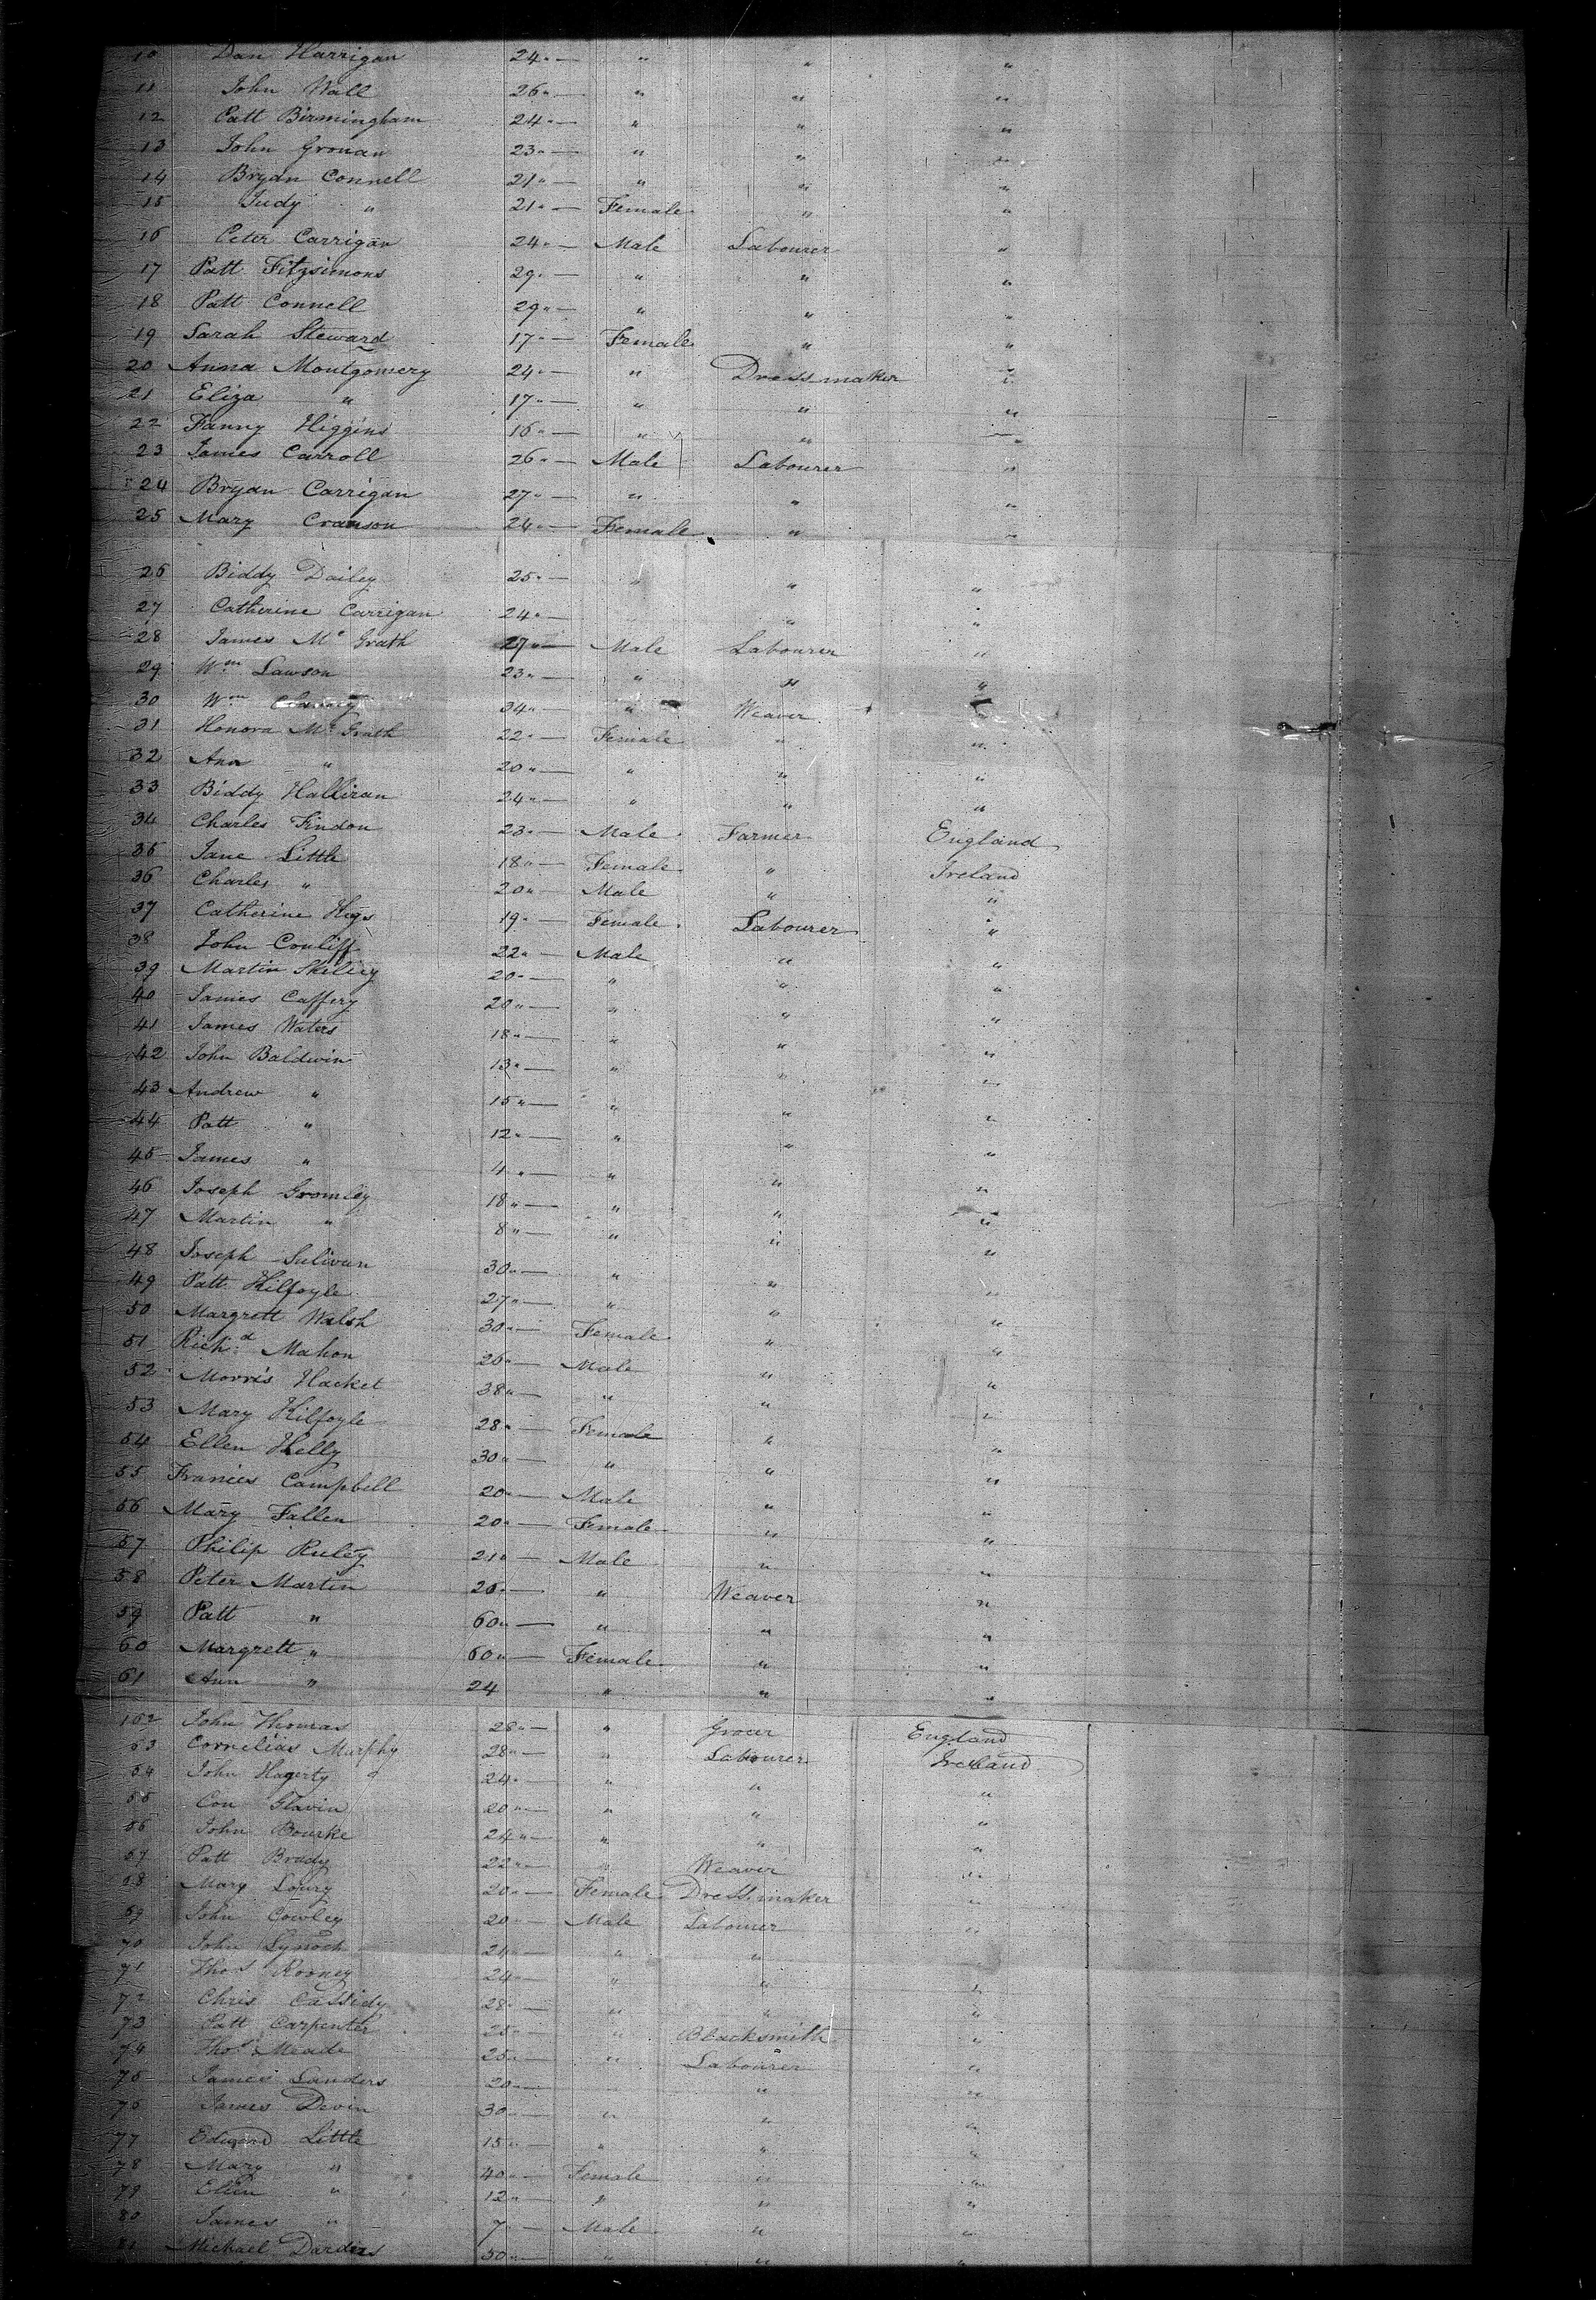 10 Dan Harrigan 24 " — " " "
11 John Wall 26 " — " " "
12 Patt Birmingham 24 " — " " "
13 John Gronan 23 " — " " "
14 Bryan Connell 21 " — " " "
15 Judy " 21 " — Female " "
16 Peter Carrigan 24 " — Male Labourer "
17 Patt Fitzsimons 29 " — " " "
18 Patt Connell 29 " — " " "
19 Sarah Steward 17 " — Female " "
20 Anna Montgomery 24 " — " Dress maker "
21 Eliza " 17 " — " " "
22 Fanny Higgins 16 " — " " "
23 James Carroll 26 " — Male Labourer "
24 Bryan Carrigan 27 " — " " "
25 Mary Cranson 24 " — Female " "
26 Biddy Dailey 25 " — " " "
27 Catherine Carrigan 24 " — " "
28 James Mc Grath 27 " — Male Labourer "
29 Wm Lawson 23 " — " " "
30 Wm 34 " — " Weaver "
31 Honora Mc Grath 22 " — Female " "
32 Ann " 20 " — " " "
33 Biddy Halliran 24 " — " " "
34 Charles Findon 23 " — Male Farmer England
35 Jane Little 18 " — Female " Ireland
36 Charles " 20 " — Male " "
37 Catherine 19 " — Female Labourer "
38 John Conliff 22 " — Male " "
39 Martin Skelley 20 " — " " "
40 James Caffery 20 " — " " "
41 James Waters 18 " — " " "
42 John Baldwin 13 " — " " "
43 Andrew " 15 " — " " "
44 Patt " 12 " — " " "
45 James " 11 " — " " "
46 Joseph Gromley 18 " — " " "
47 Martin " 8 " — " " "
48 Joseph Sulivan 30 " — " " "
49 Patt Kilfoyle 27 " — " " "
50 Margrett Walsh 30 " — Female " "
51 Richd Mahon 26 " — Male " "
52 Morris Hacket 38 " — " " "
53 Mary Kilfoyle 28 " — Female " "
54 Ellen Kelly 30 " — " " "
55 Francis Campbell 20 " — Male " "
56 Mary Fallen 20 " — Female " "
57 Philip Ruley 21 " — Male " "
58 Peter Martin 26 " — " Weaver "
59 Patt " 60 " — " " "
60 Margrett " 60 " — Female " "
61 Ann " 24 " " "
162 John Thomas 28 " — " Grocer England
63 Cornelias Murphy 28 " — " Labourer Ireland
64 John Hagerty 24 " — " " "
65 Con Glavin 20 " — " " "
66 John Bourke 24 " — " " "
67 Patt Brady 22 " — " Weaver "
68 Mary Lowry 20 " — Female Dress maker "
69 John Cowley 20 " — Male Labourer "
70 John 21 " — " " "
71 Thos Rooney 24 " — " " "
72 Chris Cassidy 28 " — " " "
73 Patt Carpenter 25 " — " Blacksmith "
74 Thos Meade 25 " — " Labourer "
75 James Landers 20 " — " "
76 James Devin 30 " — " " "
77 Edward Little 15 " — " " "
78 Mary " 40 " — Female " "
79 Ellen " 12 " — " " "
80 James " 7 " — Male " "
81 Michael Dardis 50 " — " " "